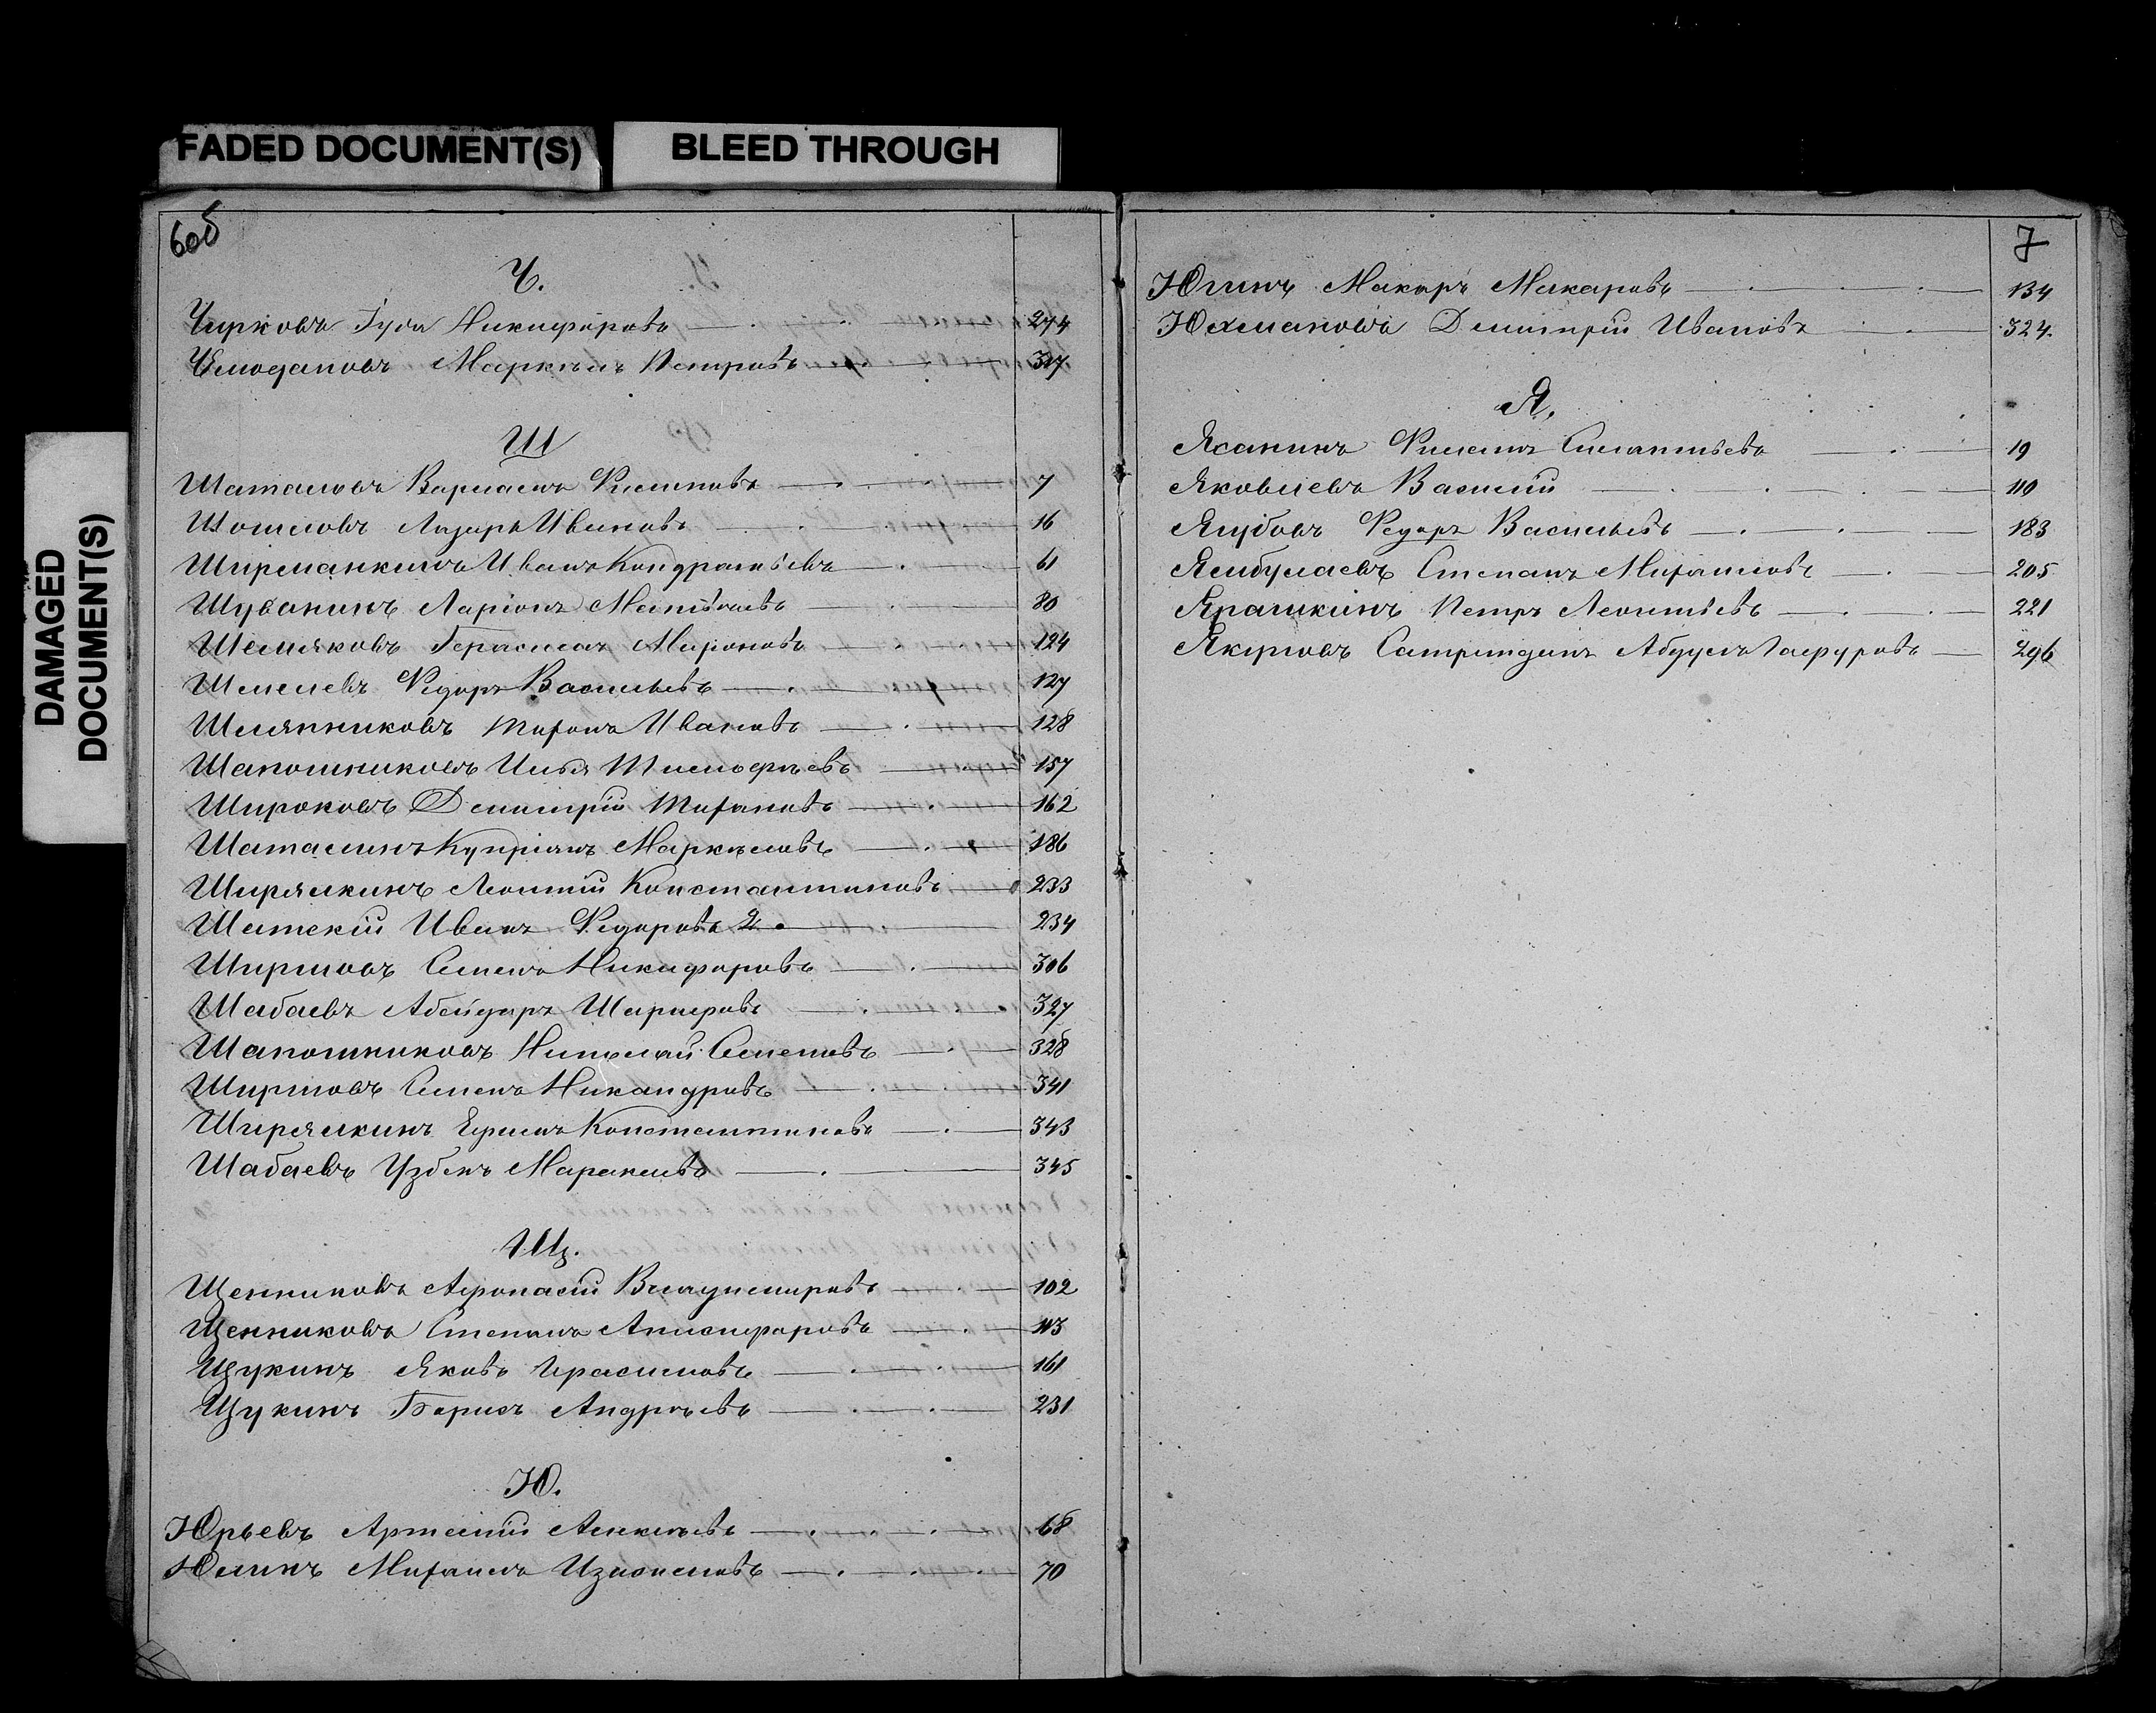 FADED DOCUMENT(S)
BLEED THROUGH
DAMAGED
DOCUMENT(S)
6об
Ч.
Чирковъ Гурій Никифоровъ 274
Чемодановъ Маркелъ Петровъ 317
Ш
Шаталовъ Варлаамъ Филиповъ 7
Шошловъ Лазарь Ивановъ 16
Ширманкинъ Иванъ Кондратьевъ 61
Шуванинъ Ларіонъ Матвѣевъ 80
Шемяковъ Герасимъ Мироновъ 124
Шмелевъ Федоръ Васильевъ 127
Шляпниковъ Тихонъ Ивановъ 128
Шапошниковъ Илья Тимофѣевъ 157
Широковъ Дмитрій Тихановъ 162
Шаталинъ Купріянъ Маркеловъ 186
Ширямкинъ Леонтій Константиновъ 233
Шатскій Иванъ Федоровъ 2 234
Ширшовъ Семенъ Никифоровъ 306
Шабаевъ Абейдаръ Шариповъ 327
Шапошниковъ Николай Семеновъ 328
Ширшовъ Семенъ Никандровъ 341
Ширямкинъ Ефимъ Константиновъ 343
Шабаевъ Узбекъ 345
Щ.
Щенниковъ Афонасій Владимировъ 102
Щенниковъ Степанъ Анисифоровъ 113
Щукинъ Яковъ Герасимовъ 161
Щукинъ Борисъ Андрѣевъ 231
Ю.
Юрьевъ Артемій Алексѣевъ 68
Юлинъ Михаилъ Измаиловъ 70
7
Юлинъ Макаръ Макаровъ 134
Юхмановъ Дмитрій Ивановъ 324.
Я.
Ясанинъ Филипъ Силантьевъ 19
Яковлевъ Василій 110
Ягубовъ Федоръ Васильевъ 183
Ямбулаевъ Степанъ Михаиловъ 205
Ярашкинъ Петръ Леонтьевъ 221
Якуповъ Абдулъ Гафуровъ 296